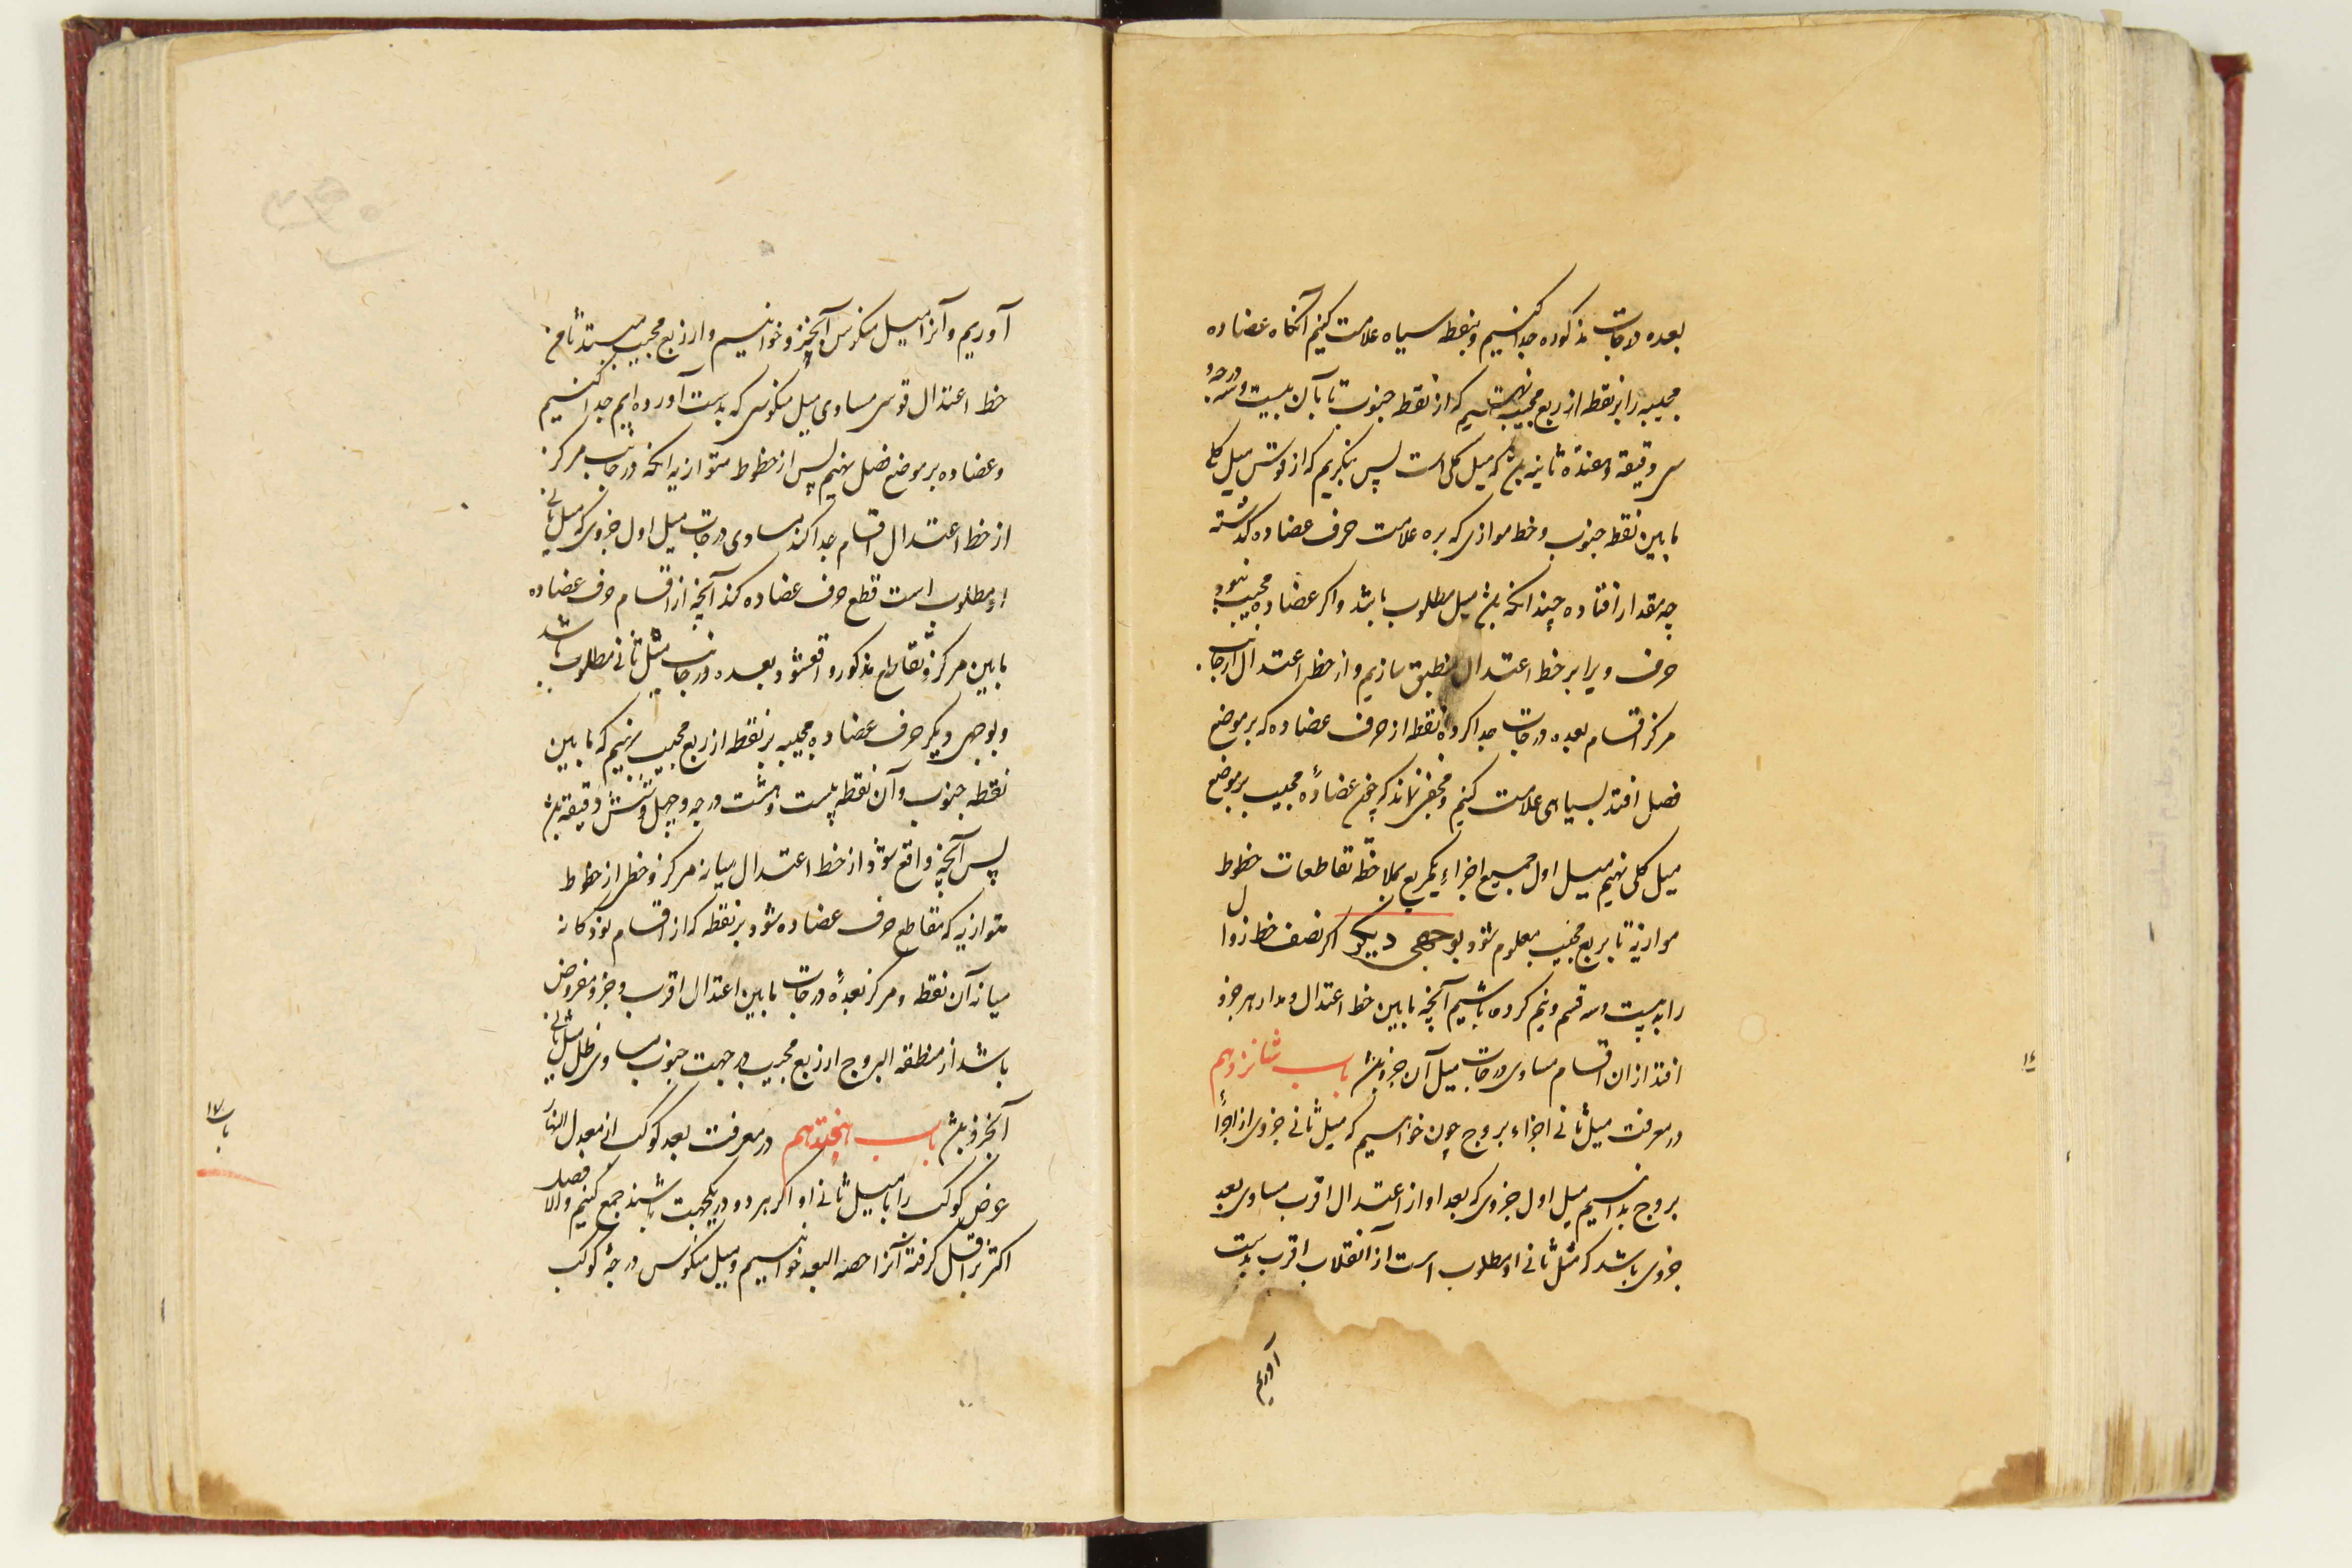 بعده درجات مذکوره جدا کنیم و بنقطه سیاه علامت کنیم آنگاه عضاده
مجیبه را بر نقطه از ربع مجیب نهیم که از نقطه جنوب تا بآن بیست و سه درجه و
سی دقیقه و هفده ثانیه باشد که میل کلی است پس بنگریم که از قوس میل کلی
مابین نقطه جنوب و خط موازی که بر علامت حرف عضاده گذشته
چه مقدار افتاده چندانکه باشد میل مطلوب باشد و اگر عضاده مجیب نبود
حرف ویرا بر خط اعتدال منطبق سازیم و از خط اعتدال از جانب
مرکز اقسام بعده درجات جدا کرده نقطه از حرف عضاده که بر موضع
فصل افتد بسیاهی علامت کنیم و مخفی نماند که چون عضاده مجیب بر موضع
میل کلی نهیم میل اول جمیع اجزاء یکربع بملاحظه تقاطعات خطوط
موازیه تا بربع مجیب معلوم شود بوجهی دیگر اگر نصف خط زوال
را به بیست و سه قسم و نیم کرده باشیم آنچه مابین خط اعتدال و مدار هر جزو
افتد ازان اقسام مساوی درجات میل آن جزو باشد باب شانزدهم
در معرفت میل ثانی اجزاء بروج چون خواهیم که میل ثانی جزوی از اجزاء
بروج بدانیم میل اول جزوی که بعد او از اعتدال اقرب مساوی بعد
جزوی باشد که میل ثانی او مطلوب است از انقلاب اقرب بدست
آوریم
آوریم و آنرا میل منکوس آنجزو خوانیم و از ربع مجیب مبتدئا من
خط اعتدال قوسی مساوی میل منکوس که بدست آورده ایم جدا کنیم
و عضاده بر موضع فصل نهیم پس از خطوط متوازیه آنکه در جانب مرکز
از خط اعتدال اقسام جدا کند مساوی درجات میل اول جزوی که میل ثانی
او مطلوب است قطع حرف عضاده کند آنچه از اقسام حرف عضاده
مابین مرکز و تقاطع مذکور واقع شود بعده درجات میل ثانی مطلوب باشد
و بوجهی دیگر حرف عضاده مجیبه بر نقطه از ربع مجیب نهیم که مابین
نقطه جنوب و آن نقطه بیست و هشت درجه و چهل و شش دقیقه باشد
پس آنچه واقع شود از خط اعتدال میانه مرکز و خطی از خطوط
متوازیه که مقاطع حرف عضاده شود بر نقطه که از اقسام نودگانه
میانه آن نقطه و مرکز بعده درجات مابین اعتدال اقرب و جزو مفروض
باشد از منطقه البروج از ربع مجیب در جهت جنوب مساوی ظل میل ثانی
آنجزو باشد باب هفتدهم در معرفت بعد کوکب از معدل النهار
عرض کوکب را با میل ثانی او اگر هر دو در یکجهت باشند جمع کنیم والا فصل
اکثر بر اقل گرفته آنرا حصه البعد خوانیم و میل منکوس درجه کوکب
باب ۱۷